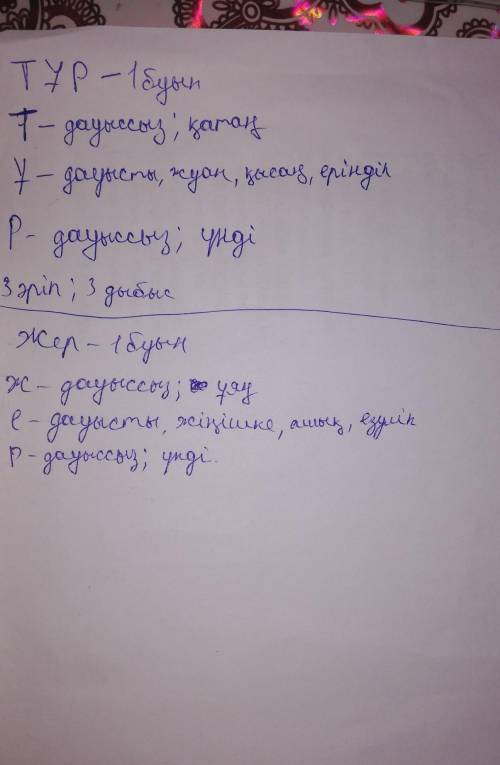 ТҰР – 1 буын
Т – дауыссыз; қатаң
Ұ – дауысты, жуан, қысаң, еріндік
Р – дауыссыз; үнді
3 әріп; 3 дыбыс
Жер – 1 буын
ж – дауыссыз; ұяң
е – дауысты, жіңішке, ашық, езулік
р – дауыссыз; үнді.